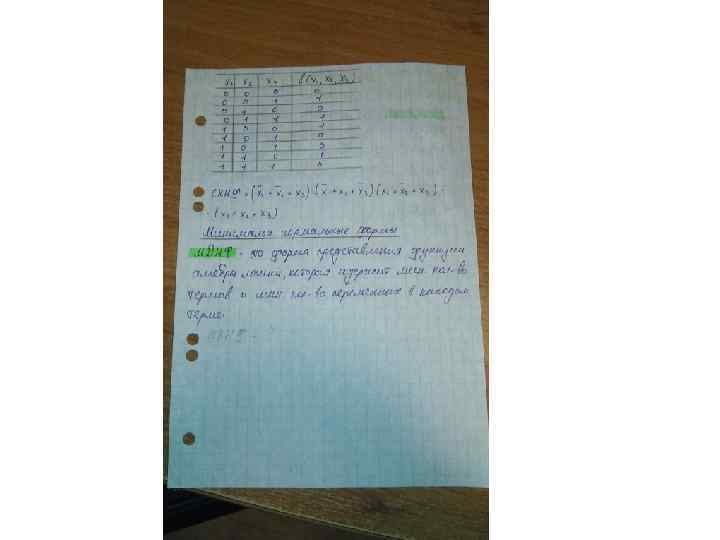 x₁ x₂ x₃ f(x₁, x₂, x₃)
0 0 0 0
0 0 1 1
0 1 0 0
0 1 1 1
1 0 0 1
1 0 1 0
1 0 1 0
1 1 0 1
1 1 1 0
СКНФ = (x̄₁ + x̄₂ + x₃) · (x̄₁ + x₂ + x̄₃) · (x₁ + x̄₂ + x₃) ·
· (x₁ + x₂ + x₃)
Минимальн. нормальные формы
МДНФ - это форма представления функции
алгебры логики, которая содержит мин кол-во
термов и мин кол-во переменных в каждом
терме.